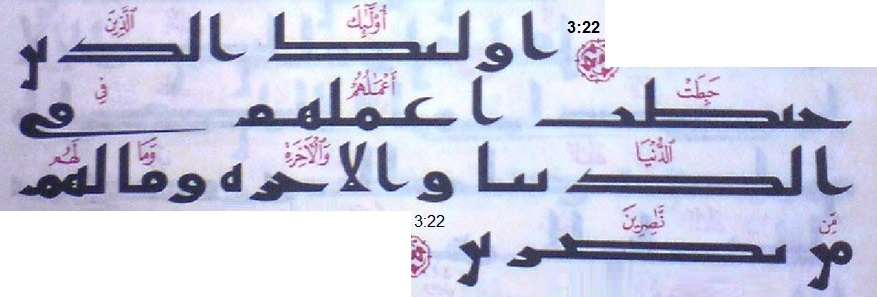 3:22 أُوْلَٰٓئِكَ ٱلَّذِينَ
اولٮك الدٮں
حَبِطَتْ أَعْمَٰلُهُمْ فِي
حٮطٮ اعملهم فى
ٱلدُّنْيَا وَٱلْأَخِرَةِ وَمَا لَهُم
الدٮٮا والاحره ومالهم
3:22 مِّن نَّٰصِرِينَ
مں ٮصرٮں